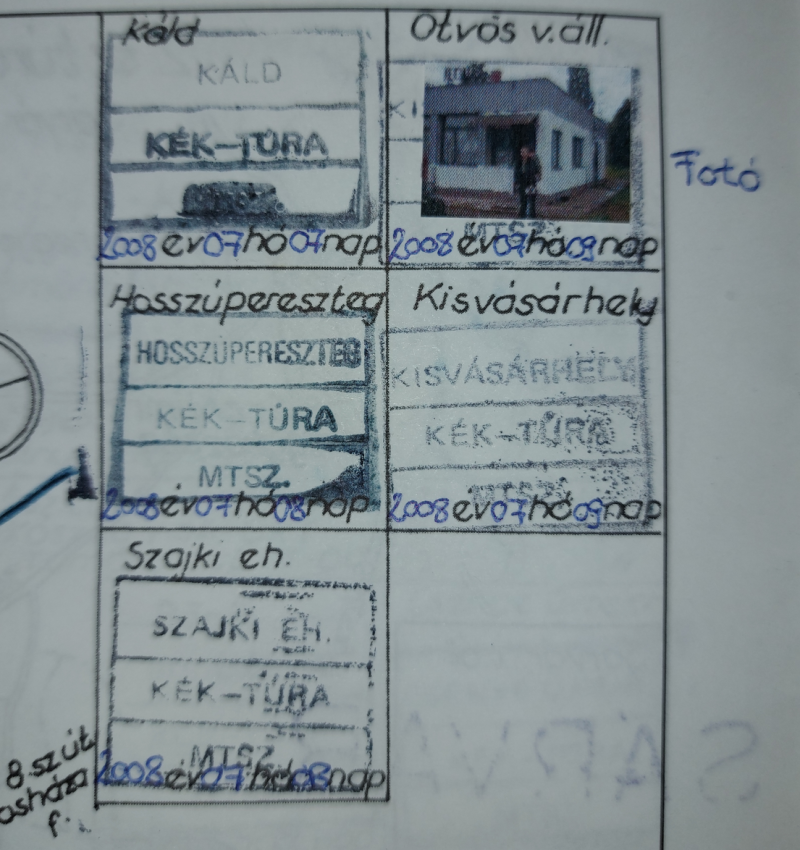 Káld
KÁLD
KÉK-TÚRA
2008 év 07 hó 07 nap
Ötvös v.áll.
KI
MTSZ.
2008 év 09 hó 09 nap
Fotó
Hosszúpereszteg
HOSSZÚPERESZTEG
KÉK-TÚRA
MTSZ.
2008 év 07 hó 08 nap
Kisvásárhely
KISVÁSÁRHELY
KÉK-TÚRA
MTSZ.
2008 év 07 hó 09 nap
Szajki eh.
SZAJKI EH.
KÉK-TÚRA
MTSZ.
2008 év 07 hó 08 nap
8.sz út
f.